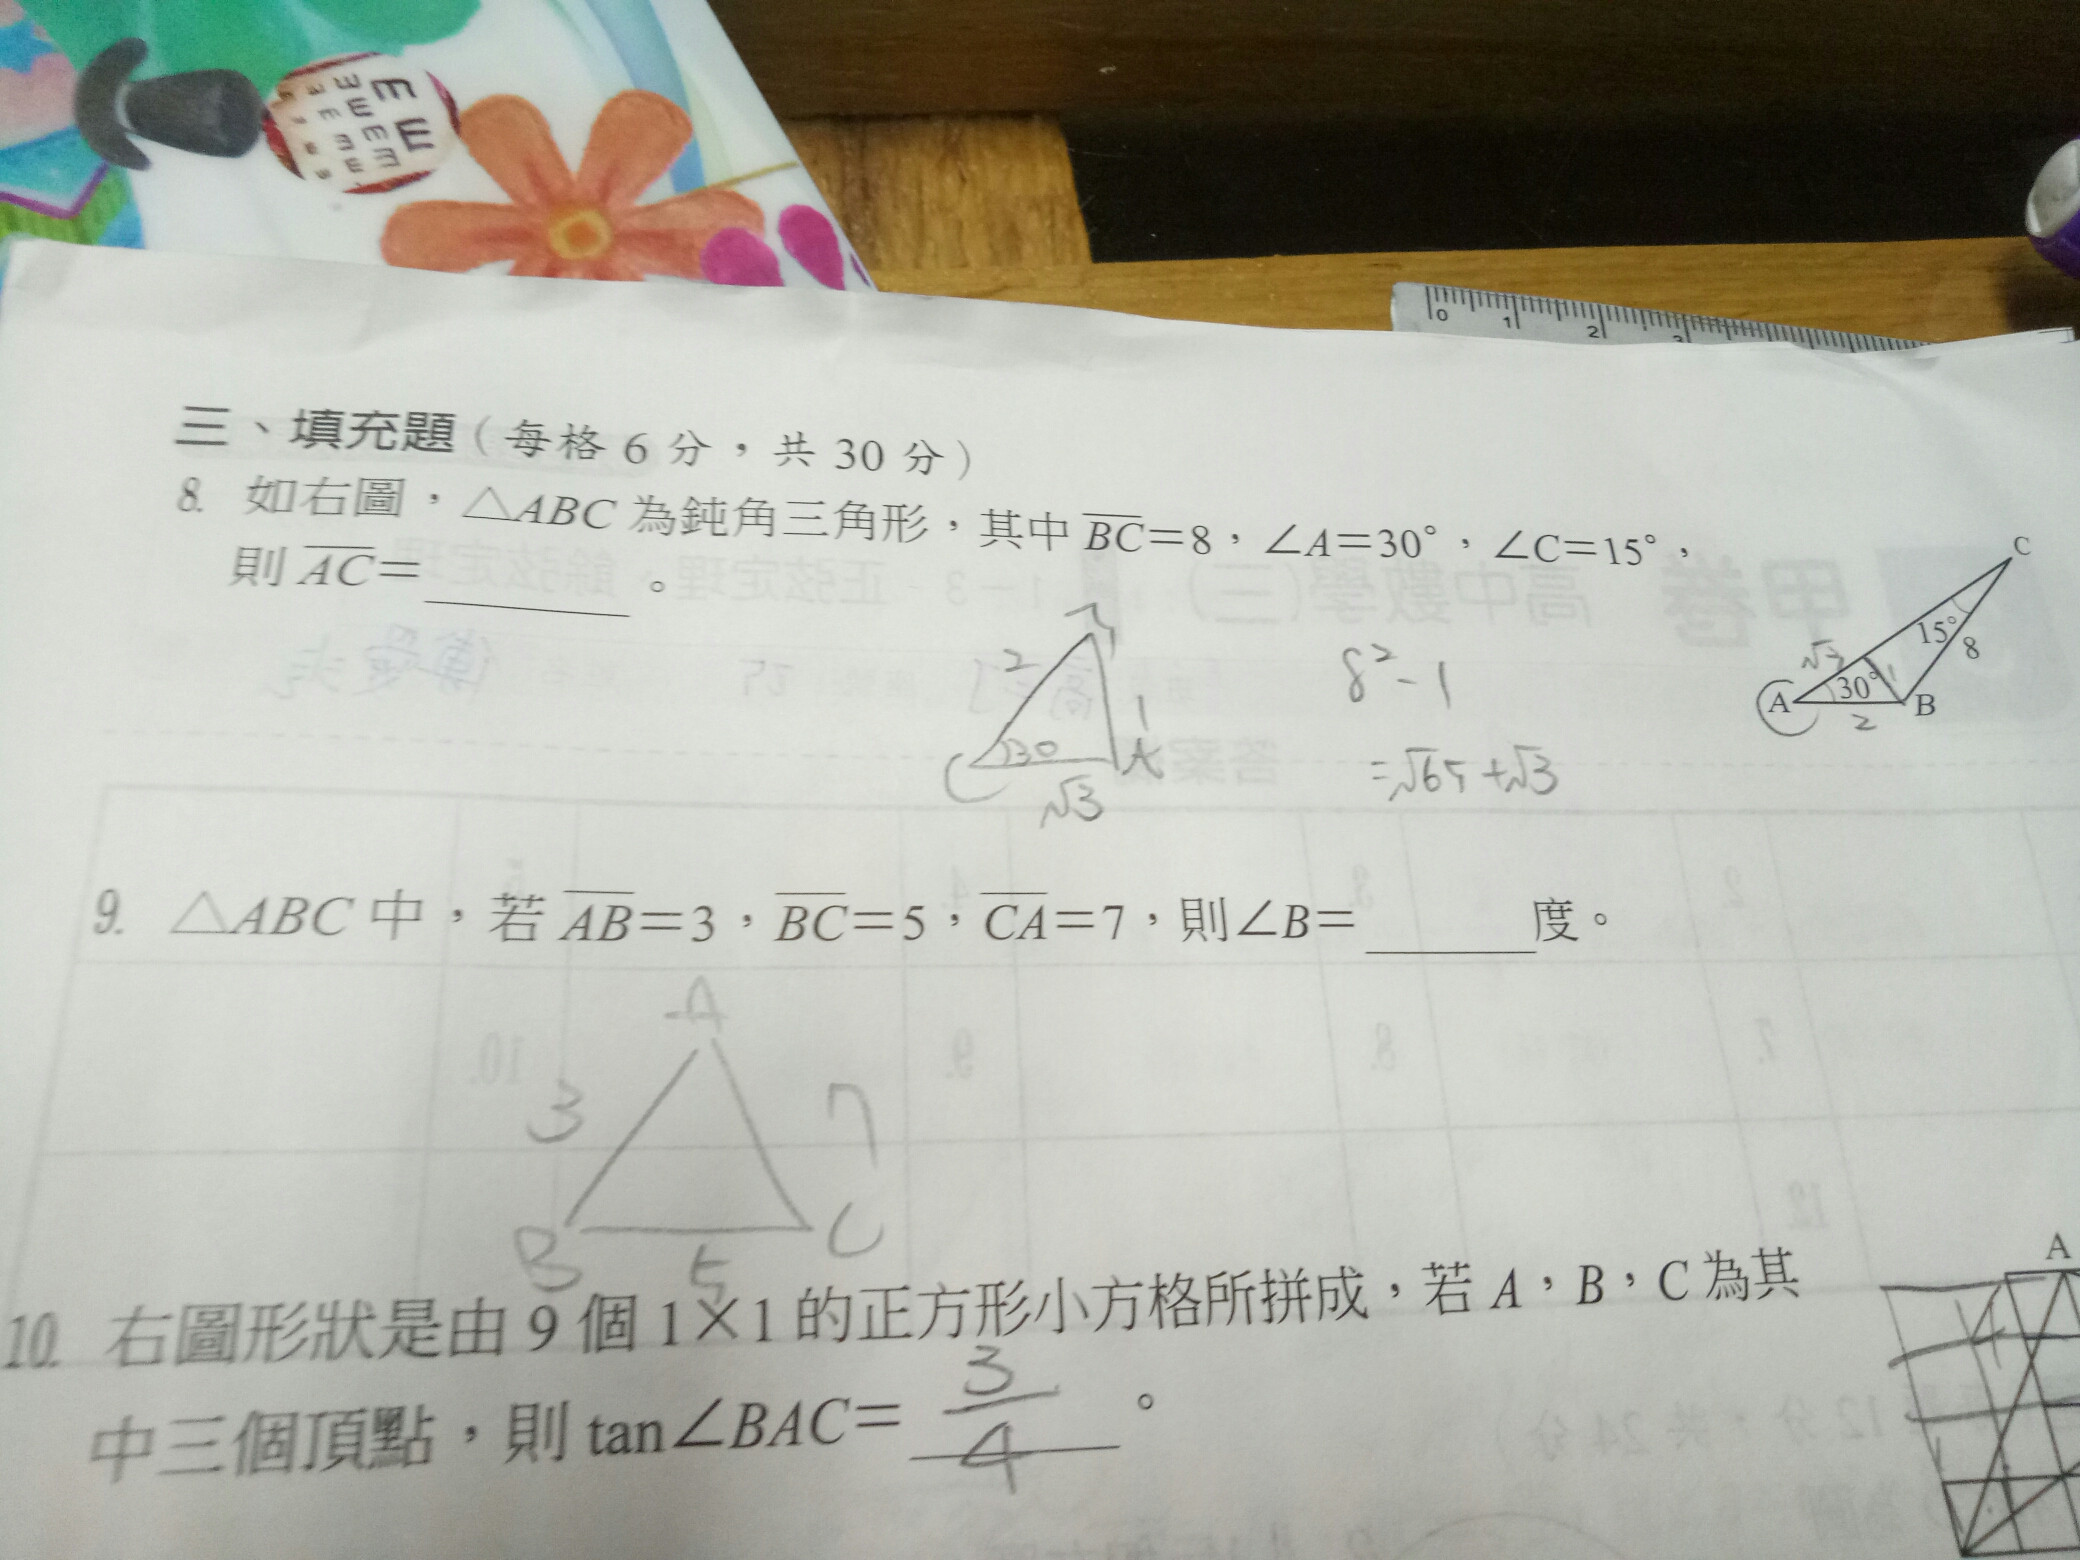 0 1 2 3
三、填充題（每格 6 分，共 30 分）
8. 如右圖，△ABC 為鈍角三角形，其中 BC＝8，∠A＝30°，∠C＝15°，
則 AC＝＿＿＿。
C
15°
8
√3
1
A
30°
B
2
2
1
30
C
A
√3
8²-1
=√65+√3
9. △ABC 中，若 AB＝3，BC＝5，CA＝7，則∠B＝＿＿＿度。
A
3
7
B
5
C
10. 右圖形狀是由 9 個 1×1 的正方形小方格所拼成，若 A，B，C 為其
中三個頂點，則 tan∠BAC＝3/4。
A